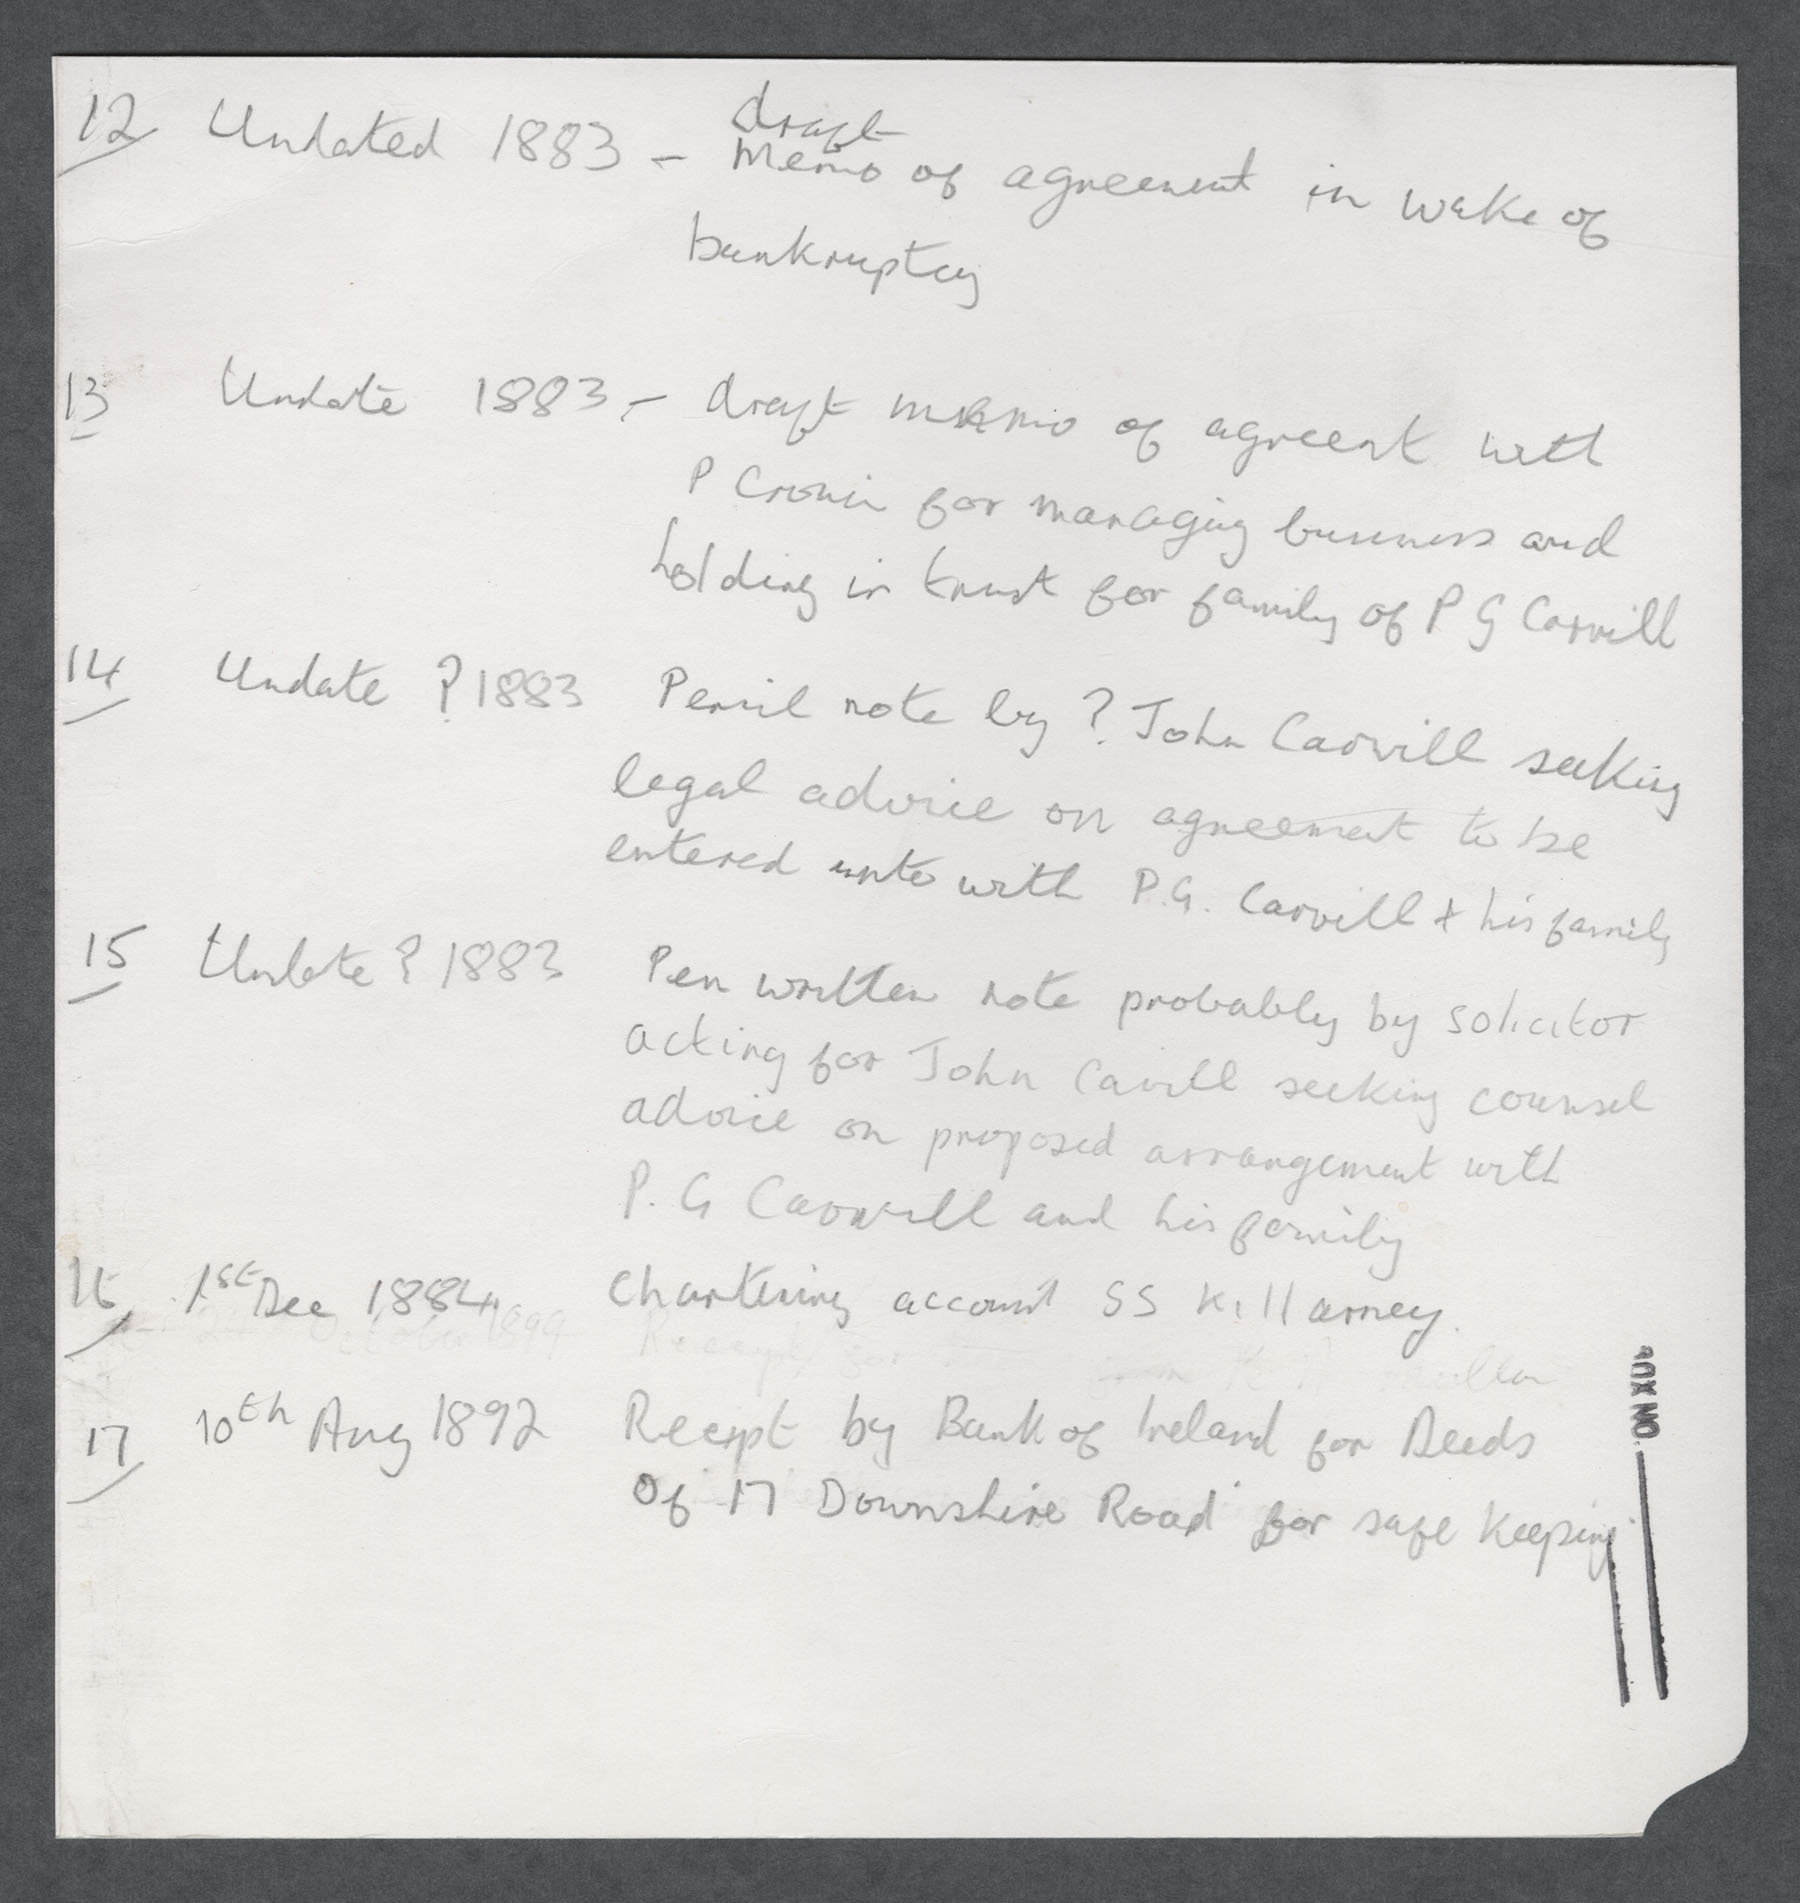 12 Undated 1883 - draft Memo of agreement in wake of
bankruptcy
13 Undate 1883 - draft memo of agreent with
P Cronin for managing business and
holding in trust for family of P G Carvill
14 Undate ? 1883 Pencil note by ? John Carvill seeking
legal advice on agreement to be
entered unto with P.G. Carvill + his family
15 Undate ? 1883 Pen written note probably by solicitor
acting for John Cavill seeking counsel
advice on proposed arrangement with
P. G Carvill and his family
16 1st Dec 1884 Chartering account SS Killarney.
October 1899 Receipt for
17 10th Aug 1892 Receipt by Bank of Ireland for Deeds
of 17 Downshire Road for safe keeping.
BOX NO.